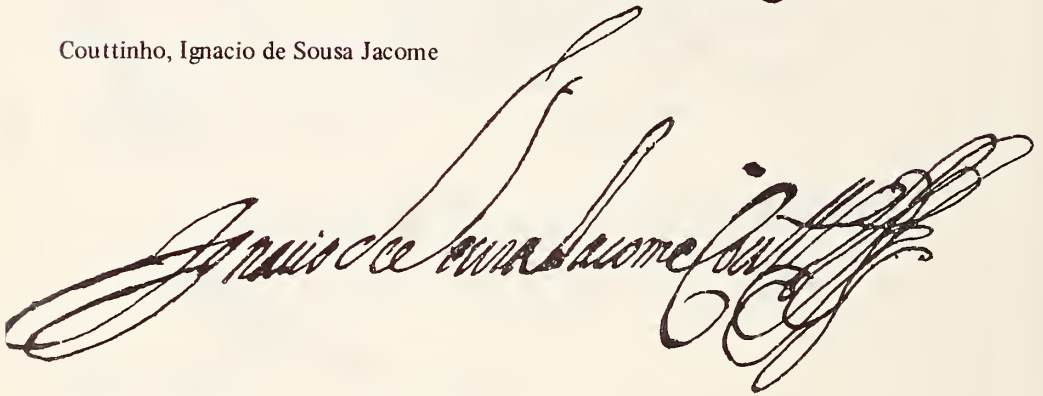 Couttinho, Ignacio de Sousa Jacome
Ignacio de Souza Jacome Coutt